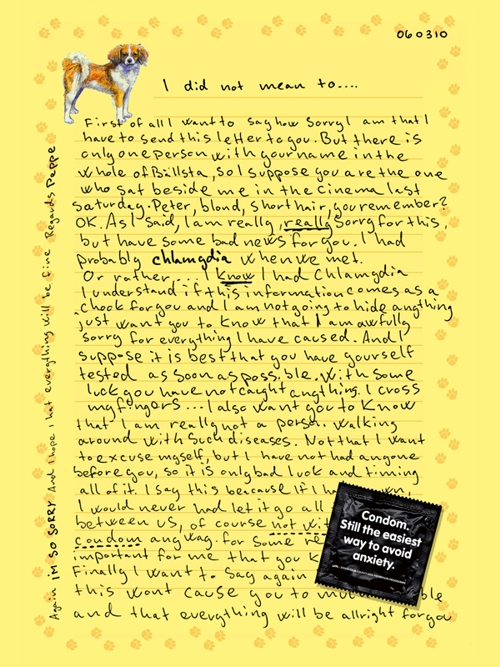 060310
I did not mean to....
First of all I want to say how sorry I am that I
have to send this letter to you. But there is
only one person with your name in the
whole of Bällsta, so I suppose you are the one
who sat beside me in the cinema last
saturday. Peter, blond, short hair, you remember?
OK. As I said, I am really, really sorry for this,
but have some bad news for you. I had
probably chlamydia when we met.
Or rather.... I know I had Chlamydia
I understand if this information comes as a
chock for you and I am not going to hide anything
just want you to know that I am awfully
sorry for everything I have caused. And I
suppose it is best that you have yourself
tested as soon as possible. With some
luck you have not caught anything. I cross
my fingers... I also want you to know
that I am really not a person walking
around with such diseases. Not that I want
to excuse myself, but I have not had anyone
before you, so it is only bad luck and timing
all of it. I say this beacause if I
I would never had let it go all
between us, of course not
condom anyway. For some
important for me that you
Finally I want to say again
this wont cause you to
and that everything will be allright for you
Again IM SO SORRY And I hope that everything will be fine Regards Peppe
Condom.
Still the easiest
way to avoid
anxiety.